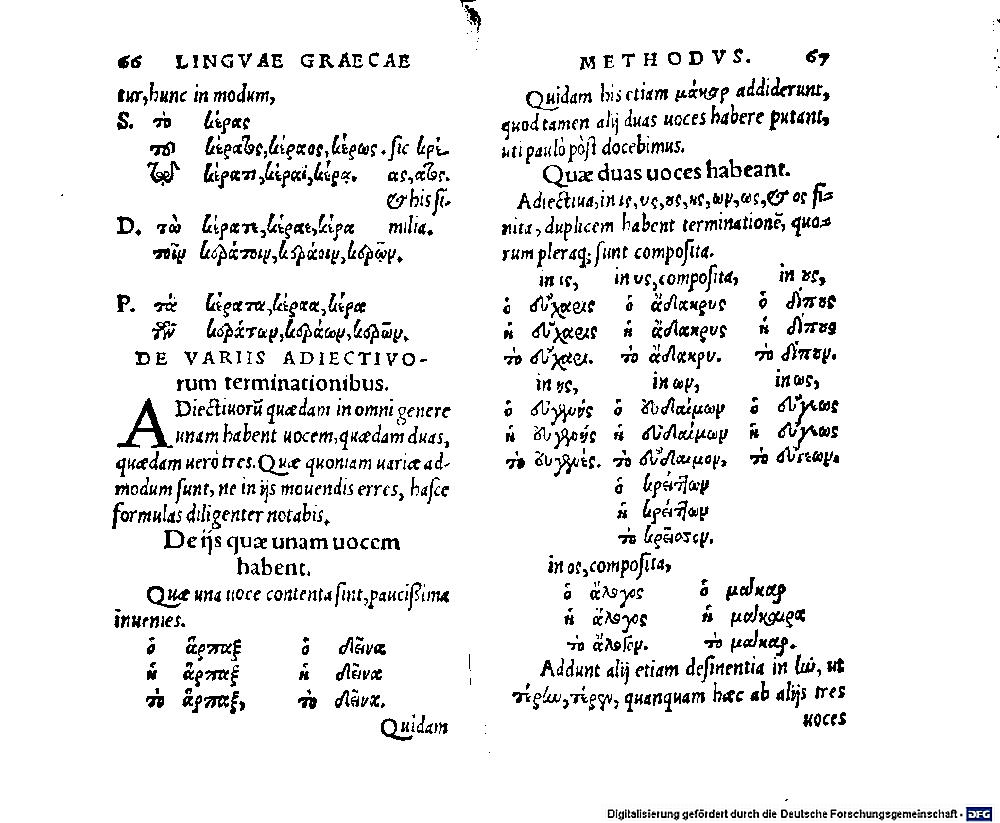 66 LINGVAE GRAECAE
tur, hunc in modum,
S. τὸ κέρας
τοῦ κέρατος, κέραος, κέρως. sic κρέ-
τῷ κέρατι, κέραϊ, κέρᾳ. ας, ατος.
& his si-
D. τὼ κέρατε, κέραε, κέρα milia.
τοῖν κεράτοιν, κεράοιν, κερῷν.
P. τὰ κέρατα, κέραα, κέρα
τῶν κεράτων, κεράων, κερῶν.
DE VARIIS ADIECTIVO-
rum terminationibus.
ADiectiuorũ quædam in omni genere
unam habent uocem, quædam duas,
quædam uerò tres. Quæ quoniam uariæ ad-
modum sunt, ne in ijs mouendis erres, hasce
formulas diligenter notabis.
De ijs quæ unam uocem
habent.
Quæ una uoce contenta sint, paucißima
inuenies.
ὁ ἅρπαξ ὁ δεῖνα
ἡ ἅρπαξ ἡ δεῖνα
τὸ ἅρπαξ, τὸ δεῖνα.
Quidam
METHODVS. 67
Quidam his etiam μάκαρ addiderunt,
quod tamen alij duas uoces habere putant,
uti paulò pòst docebimus.
Quæ duas uoces habeant.
Adiectiua, in ις, υς, ους, ης, ων, ως, & ος fi-
nita, duplicem habent terminationẽ, quo-
rum pleraq; sunt composita.
in ις, in υς, composita, in ους,
ὁ εὔχαρις ὁ ἄδακρυς ὁ δίπους
ἡ εὔχαρις ἡ ἄδακρυς ἡ δίπους
τὸ εὔχαρι. τὸ ἄδακρυ. τὸ δίπουν.
in ης, in ων, in ως,
ὁ εὐγενής ὁ εὐδαίμων ὁ εὔγεως
ἡ εὐγενής ἡ εὐδαίμων ἡ εὔγεως
τὸ εὐγενές. τὸ εὔδαιμον, τὸ εὔγεων.
ὁ κρείττων
ἡ κρείττων
τὸ κρεῖττον.
in ος, composita,
ὁ ἄλογος ὁ μάκαρ
ἡ ἄλογος ἡ μάκαιρα
τὸ ἄλογον. τὸ μάκαρ.
Addunt alij etiam desinentia in ην, ut
τέρην, τέρεν, quanquam hæc ab alijs tres
uoces
Digitalisierung gefördert durch die Deutsche Forschungsgemeinschaft - DFG